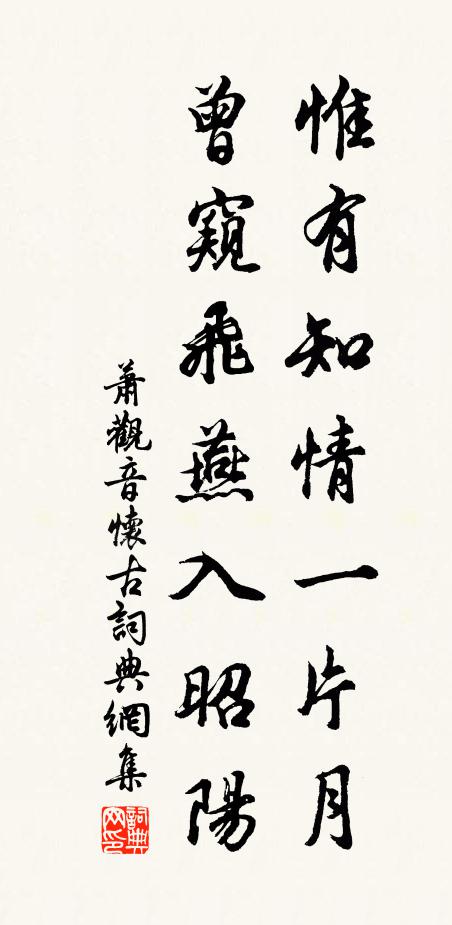 惟有知情一片月
曾窺飛燕入昭陽
蕭觀音懷古詞典網集
詞典网印